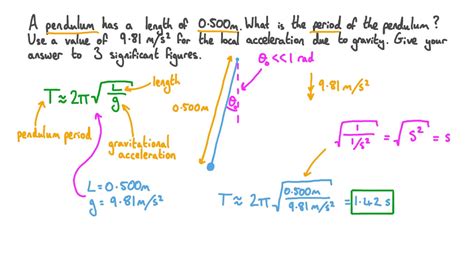 A pendulum has a length of 0.500m. What is the period of the pendulum?
Use a value of 9.81 m/s² for the local acceleration due to gravity. Give your
answer to 3 significant figures.
θ₀ << 1 rad
length
T ≈ 2π√(L/g)
0.500m
θ₀
9.81 m/s²
pendulum period
gravitational
acceleration
√(1/(1/s²)) = √(s²) = s
L = 0.500m
g = 9.81 m/s²
T ≈ 2π√(0.500m/9.81 m/s²) = 1.42 s